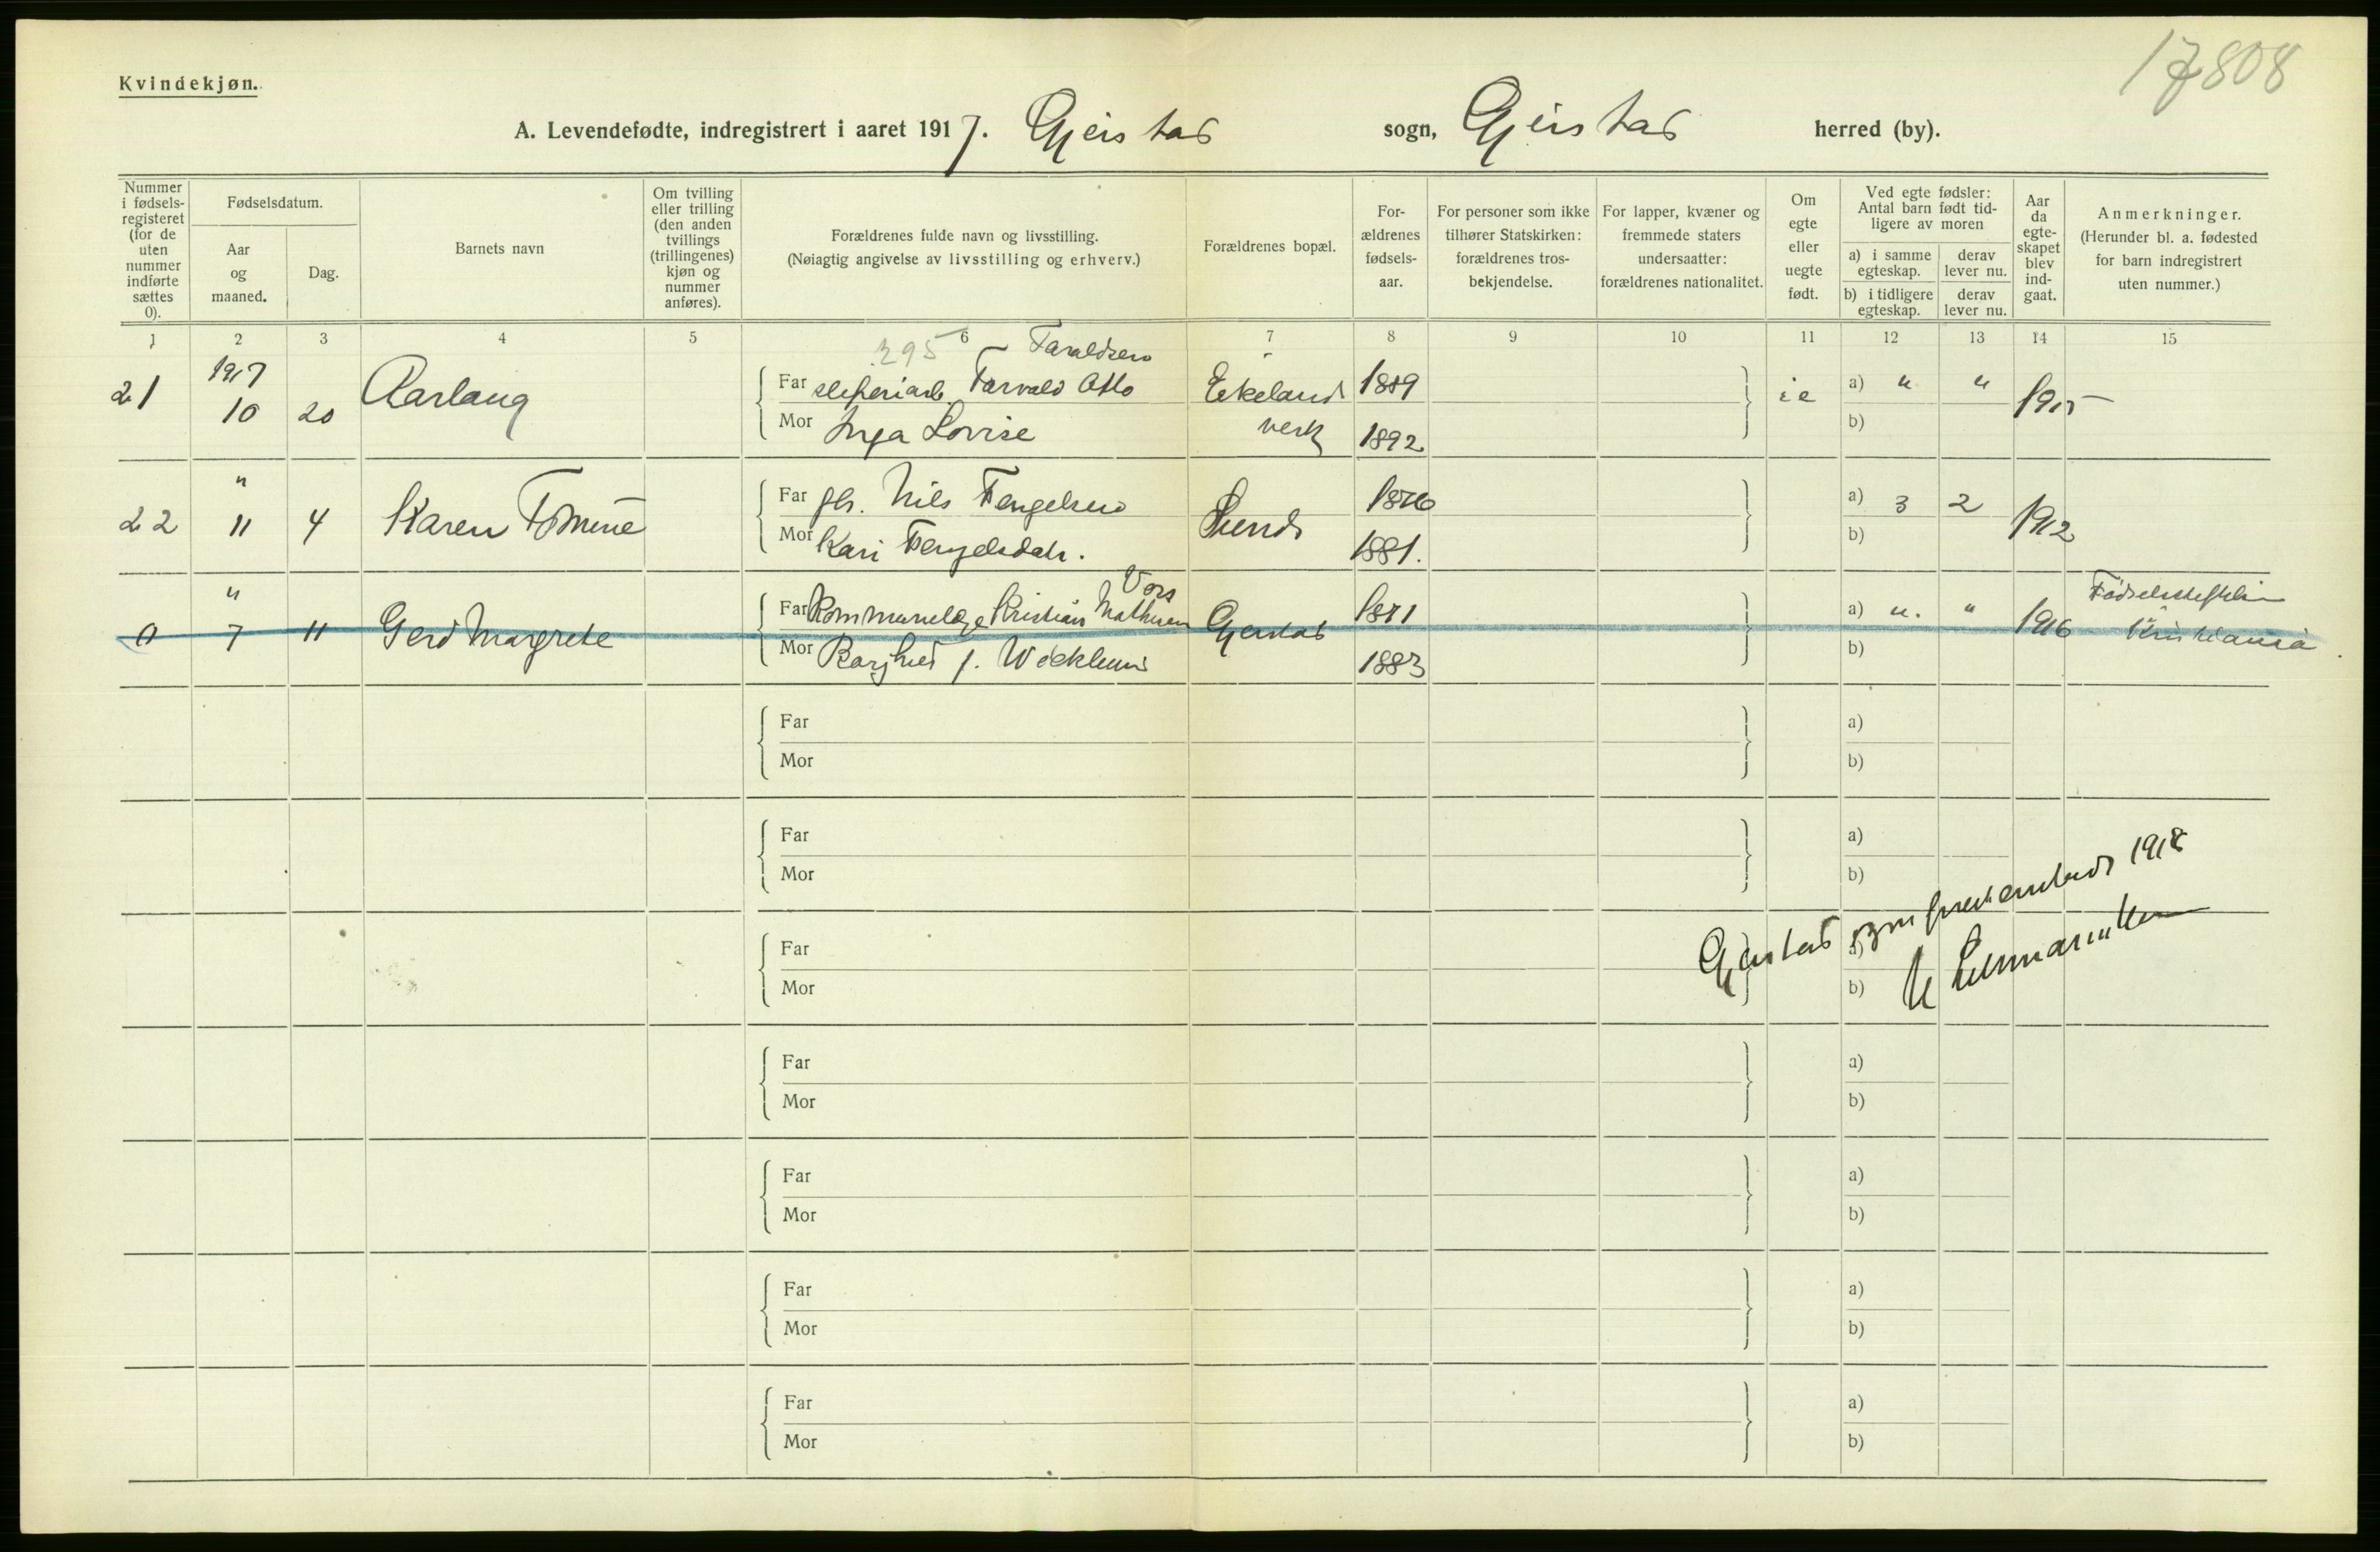 17808
Kvindekjøn.
A. Levendefødte, indregistrert i aaret 1917. Gjerstad sogn, Gjerstad herred (by).
Nummer i fødselsregisteret (for de uten nummer indførte sættes 0).
Fødselsdatum.
Aar og maaned.
Dag.
Barnets navn
Om tvilling eller trilling (den anden tvillings (trillingenes) kjøn og nummer anføres).
Forældrenes fulde navn og livsstilling.
(Nøiagtig angivelse av livsstilling og erhverv.)
Forældrenes bopæl.
Forældrenes fødselsaar.
For personer som ikke tilhører Statskirken: forældrenes trosbekjendelse.
For lapper, kvæner og fremmede staters undersaatter: forældrenes nationalitet.
Om egte eller uegte født.
Ved egte fødsler: Antal barn født tidligere av moren
a) i samme egteskap.
derav lever nu.
b) i tidligere egteskap.
derav lever nu.
Aar da egteskapet blev indgaat.
Anmerkninger.
(Herunder bl. a. fødested for barn indregistrert uten nummer.)
1 2 3 4 5 6 7 8 9 10 11 12 13 14 15
295 Taraldsen
21 1917 10 20 Aaslaug Far Torvald Otto Eikelands 1889 a) " " 1915
Mor Inga Lovise verk 1892 b)
22 " 11 4 Karen Tomine Far Nils Tengelsen 1876 a) 3 2 1912
Mor Kari Tengelsdatr. 1881. b)
Vors
0 " 7 11 Gerd Margrete Far Kommunelæge Kristian Mathisen Gjerstad 1871 a) " " 1916 Kristiania
Mor Borghild f. 1883 b)
Far a)
Mor b)
Far a)
Mor b)
Gjerstad 1918
Far a)
Mor b)
Far a)
Mor b)
Far a)
Mor b)
Far a)
Mor b)
Far a)
Mor b)